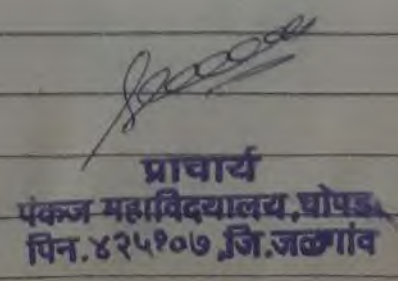 प्राचार्य
पंकज महाविद्यालय, चोपडा.
पिन. ४२५१०७, जि. जळगांव